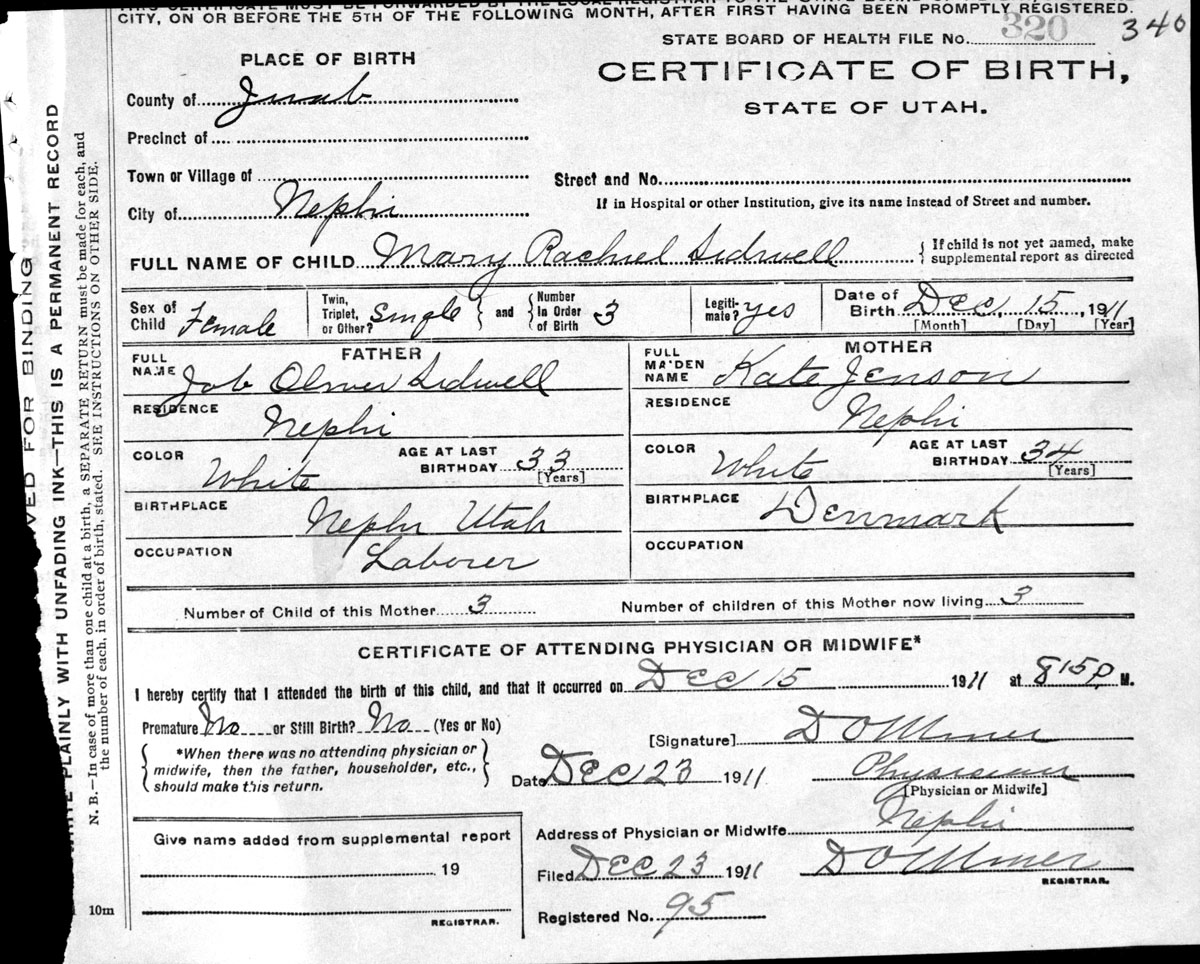 THIS CERTIFICATE MUST BE FORWARDED BY THE LOCAL REGISTRAR TO THE STATE BOARD OF
CITY, ON OR BEFORE THE 5TH OF THE FOLLOWING MONTH, AFTER FIRST HAVING BEEN PROMPTLY REGISTERED.
STATE BOARD OF HEALTH FILE No. 320 340
PLACE OF BIRTH
CERTIFICATE OF BIRTH,
STATE OF UTAH.
County of Juab
Precinct of
Town or Village of
Street and No.
City of Nephi
If in Hospital or other Institution, give its name instead of Street and number.
FULL NAME OF CHILD Mary Rachiel Sidwell { If child is not yet named, make
supplemental report as directed
Sex of Child Female
Twin, Triplet, or Other? Single } and { Number In Order of Birth 3
Legiti- mate? yes
Date of Birth Dec, 15, 1911
[Month] [Day] [Year]
FATHER
FULL NAME Job Oliver Sidwell
MOTHER
FULL MAIDEN NAME Kate Jenson
RESIDENCE Nephi
RESIDENCE Nephi
COLOR White
AGE AT LAST BIRTHDAY 33 [Years]
COLOR White
AGE AT LAST BIRTHDAY 34 [Years]
BIRTHPLACE Nephi Utah
BIRTHPLACE Denmark
OCCUPATION Laborer
OCCUPATION
Number of Child of this Mother 3
Number of children of this Mother now living 3
CERTIFICATE OF ATTENDING PHYSICIAN OR MIDWIFE*
I hereby certify that I attended the birth of this child, and that it occurred on Dec 15 1911 at 8 15 P M.
Premature No or Still Birth? No (Yes or No)
{ *When there was no attending physician or
midwife, then the father, householder, etc.,
should make this return. }
[Signature] D O Miner
Date Dec 23 1911
Physician
[Physician or Midwife]
Address of Physician or Midwife Nephi
Filed Dec 23 1911 D O Miner
REGISTRAR.
Registered No. 95
Give name added from supplemental report
19
REGISTRAR.
10m
VED FOR BINDING
PLAINLY WITH UNFADING INK—THIS IS A PERMANENT RECORD
N. B.—In case of more than one child at a birth, a SEPARATE RETURN must be made for each, and
the number of each, in order of birth, stated. SEE INSTRUCTIONS ON OTHER SIDE.